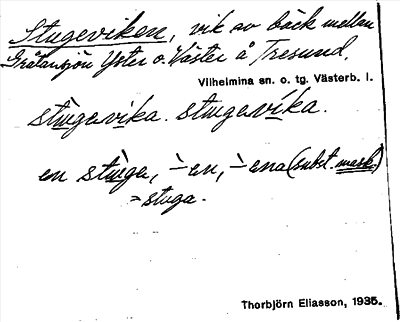 Stugeviken, vik av bäck mellan
Gråtansjön Yster o. Väster å Tresund.
Vilhelmina sn. o. tg. Västerb. l.
stùgevika. stugevíka.
en stùga, -̀en, -̀ena (subst. mask.)
= stuga.
Thorbjörn Eliasson, 1935.